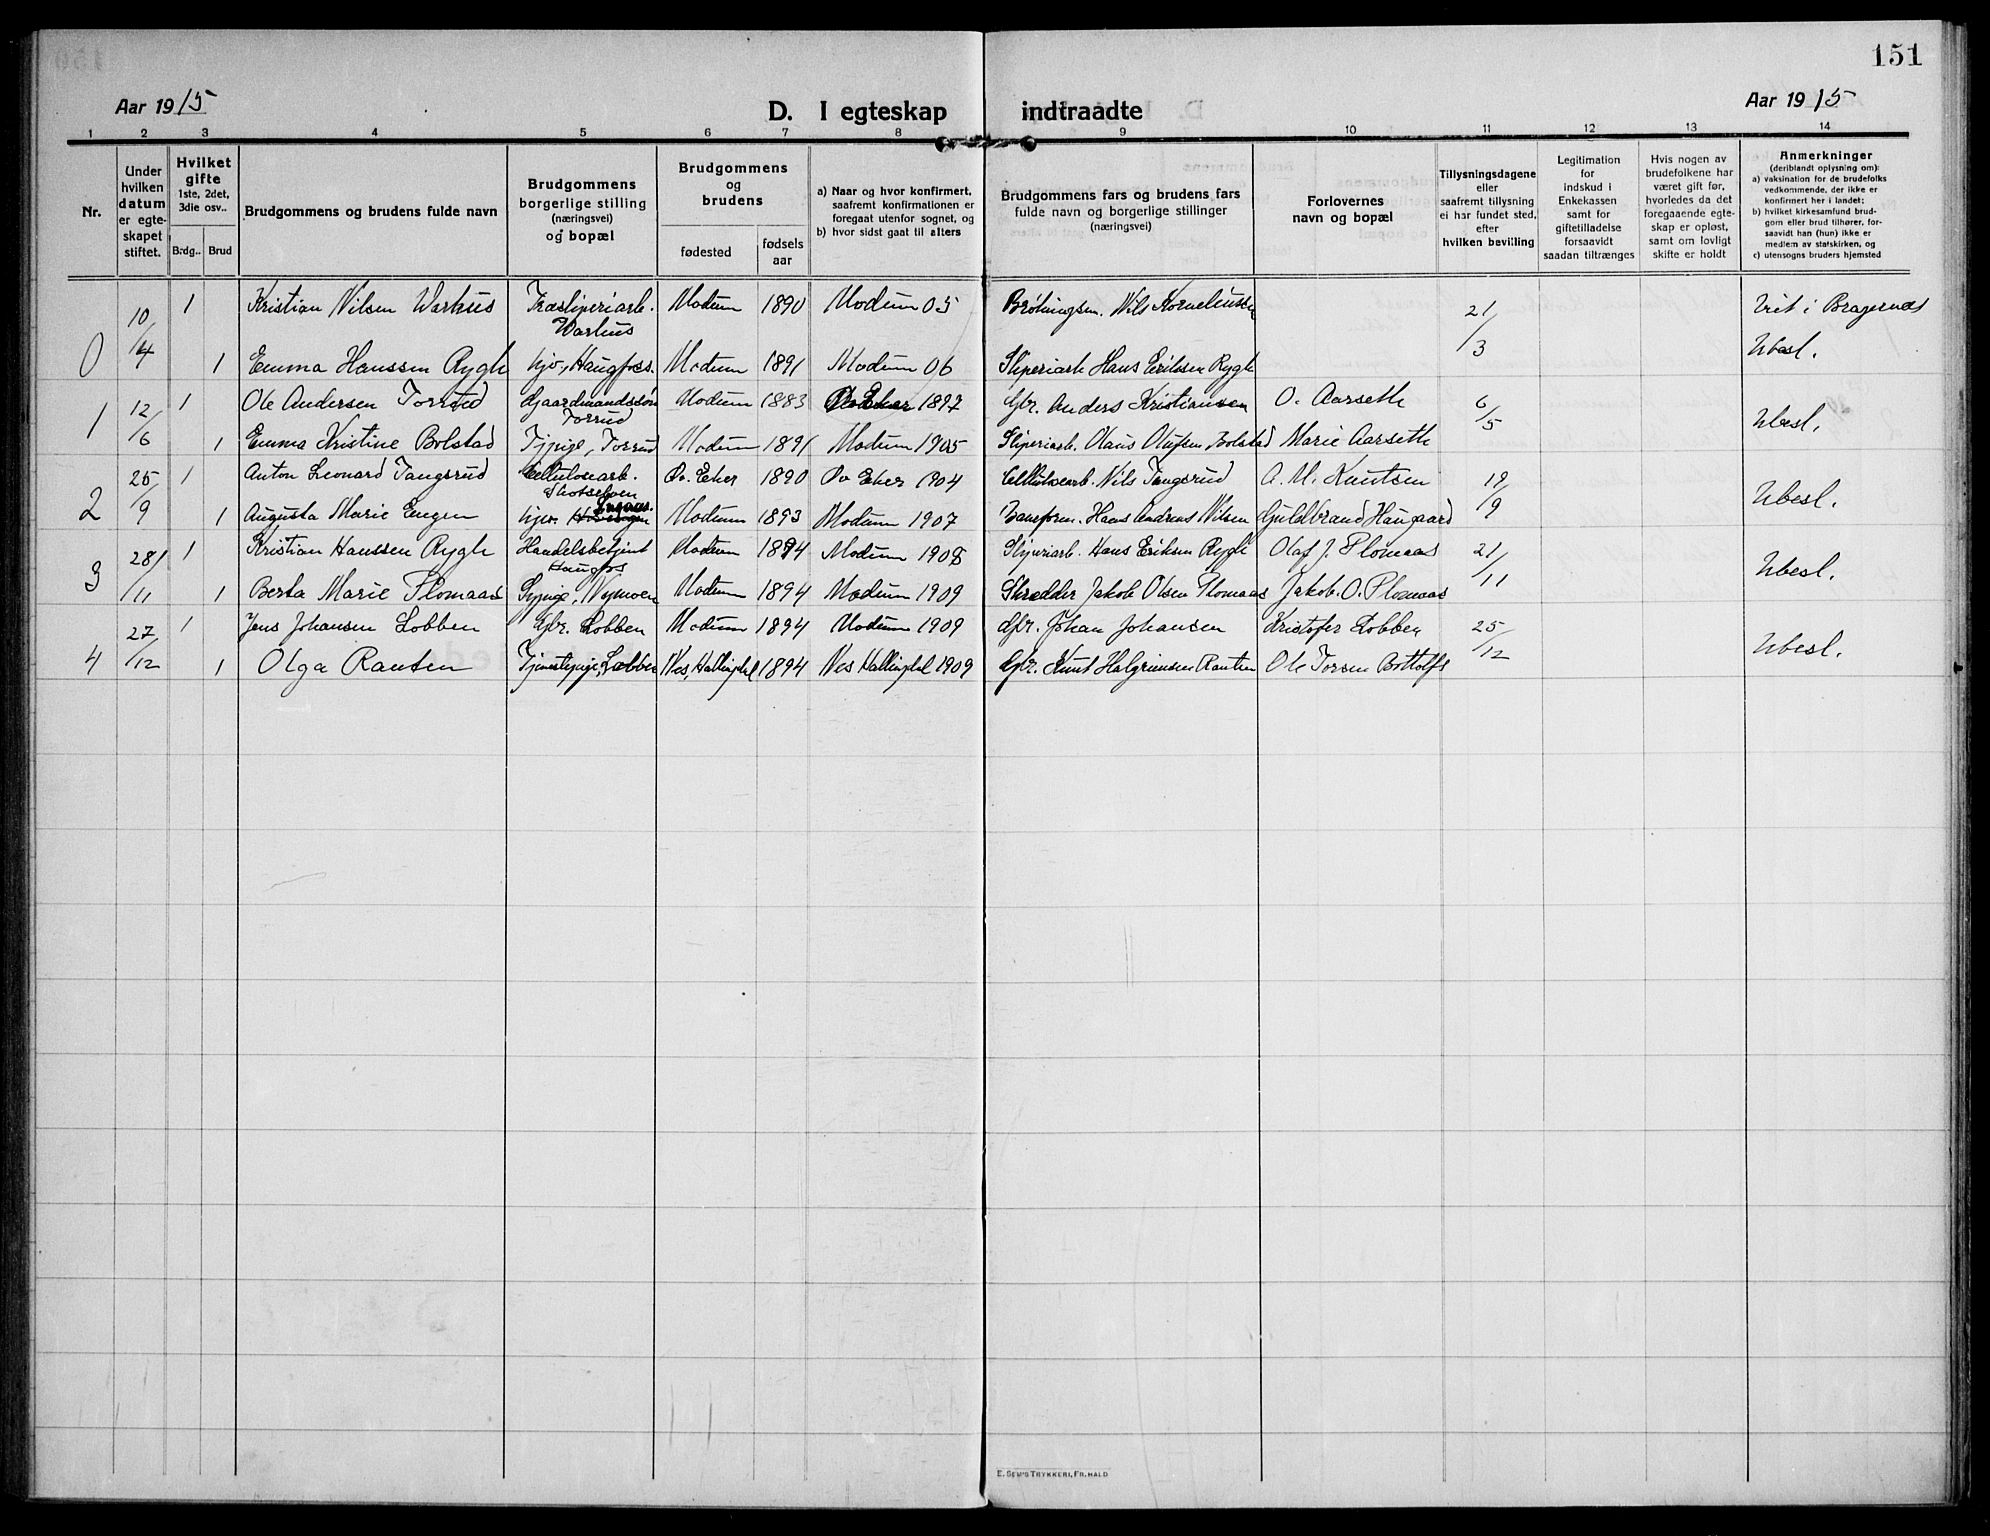 151
Aar 1915
D. I egteskap indtraadte
Aar 1915
1 2 3 4 5 6 7 8 9 10 11 12 13 14
Nr.
Under hvilken datum er egte- skapet stiftet.
Hvilket gifte 1ste, 2det, 3die osv..
Brdg.. Brud
Brudgommens og brudens fulde navn
Brudgommens borgerlige stilling (næringsvei) og bopæl
Brudgommens og brudens
fødested
fødsels aar
a) Naar og hvor konfirmert, saafremt konfirmationen er foregaat utenfor sognet, og
b) hvor sidst gaat til alters
Brudgommens fars og brudens fars fulde navn og borgerlige stillinger (næringsvei)
Forlovernes navn og bopæl
Tillysningsdagene eller saafremt tillysning ei har fundet sted, efter hvilken bevilling
Legitimation for indskud i Enkekassen samt for giftetilladelse forsaavidt saadan tiltrænges
Hvis nogen av brudefolkene har været gift før, hvorledes da det foregaaende egte- skap er opløst, samt om lovligt skifte er holdt
Anmerkninger (deriblandt oplysning om):
a) vaksination for de brudefolks vedkommende, der ikke er konfirmert her i landet;
b) hvilket kirkesamfund brud- gom eller brud tilhører, for- saavidt han (hun) ikke er medlem av statskirken, og
c) utensogns bruders hjemsted
0 10/4 1 Kristian Nilsen Warhus Træsliperiarb. Warhus Modum 1890 Modum 05 Nils Korneliussen 21/3 Viet i Bragernæs
1 Emma Hanssen Rygh hjv., Haugfoss. Modum 1891 Modum 06 Sliperiarb Hans Erikssen Rygh Ubesl.
1 12/6 1 Ole Andersen Torrud Gaardmandssøn Torrud Modum 1883 1897 Gbr. Anders Kristiansen O. Aarseth 6/5 Ubesl.
1 Emma Kristine Bolstad Tjpige, Torrud Modum 1891 Modum 1905 Sliperiarb. Olaus Olufsen Bolstad Marie Aarseth
2 25/9 1 Anton Leonard Tangsrud Cellulosearb. Skotselven Øv. Eker 1890 Øv Eker 1904 Cellulosearb. Nils Tangsrud A. M. Knutsen 19/9 Ubesl.
1 Augusta Marie Engen hjv. Modum 1893 Modum 1907 Hans Andreas Nilsen Guldbrand Haugaard
3 28/11 1 Kristian Hanssen Rygh Handelsbetjent Haugfos Modum 1894 Modum 1908 Sliperiarb. Hans Eriksen Rygh Olaf J. Plomaas 21/11 Ubesl.
1 Berta Marie Plomaas Sypige, Nymoen Modum 1894 Modum 1909 Skredder Jakob Olsen Plomaas Jakob. O. Plomaas
4 27/12 1 Jens Johansen Lobben Gbr. Lobben Modum 1894 Modum 1909 Gbr. Johan Johansen Kristofer Lobben 25/12 Ubesl.
1 Olga Rauten Tjenestepige, Lobben Nes, Hallingdal 1894 Nes Hallingdal 1909 Gbr. Knut Halgrimsen Rauten Ole Torsen Bottolfs
E. SEM'S TRYKKERI, FR.HALD